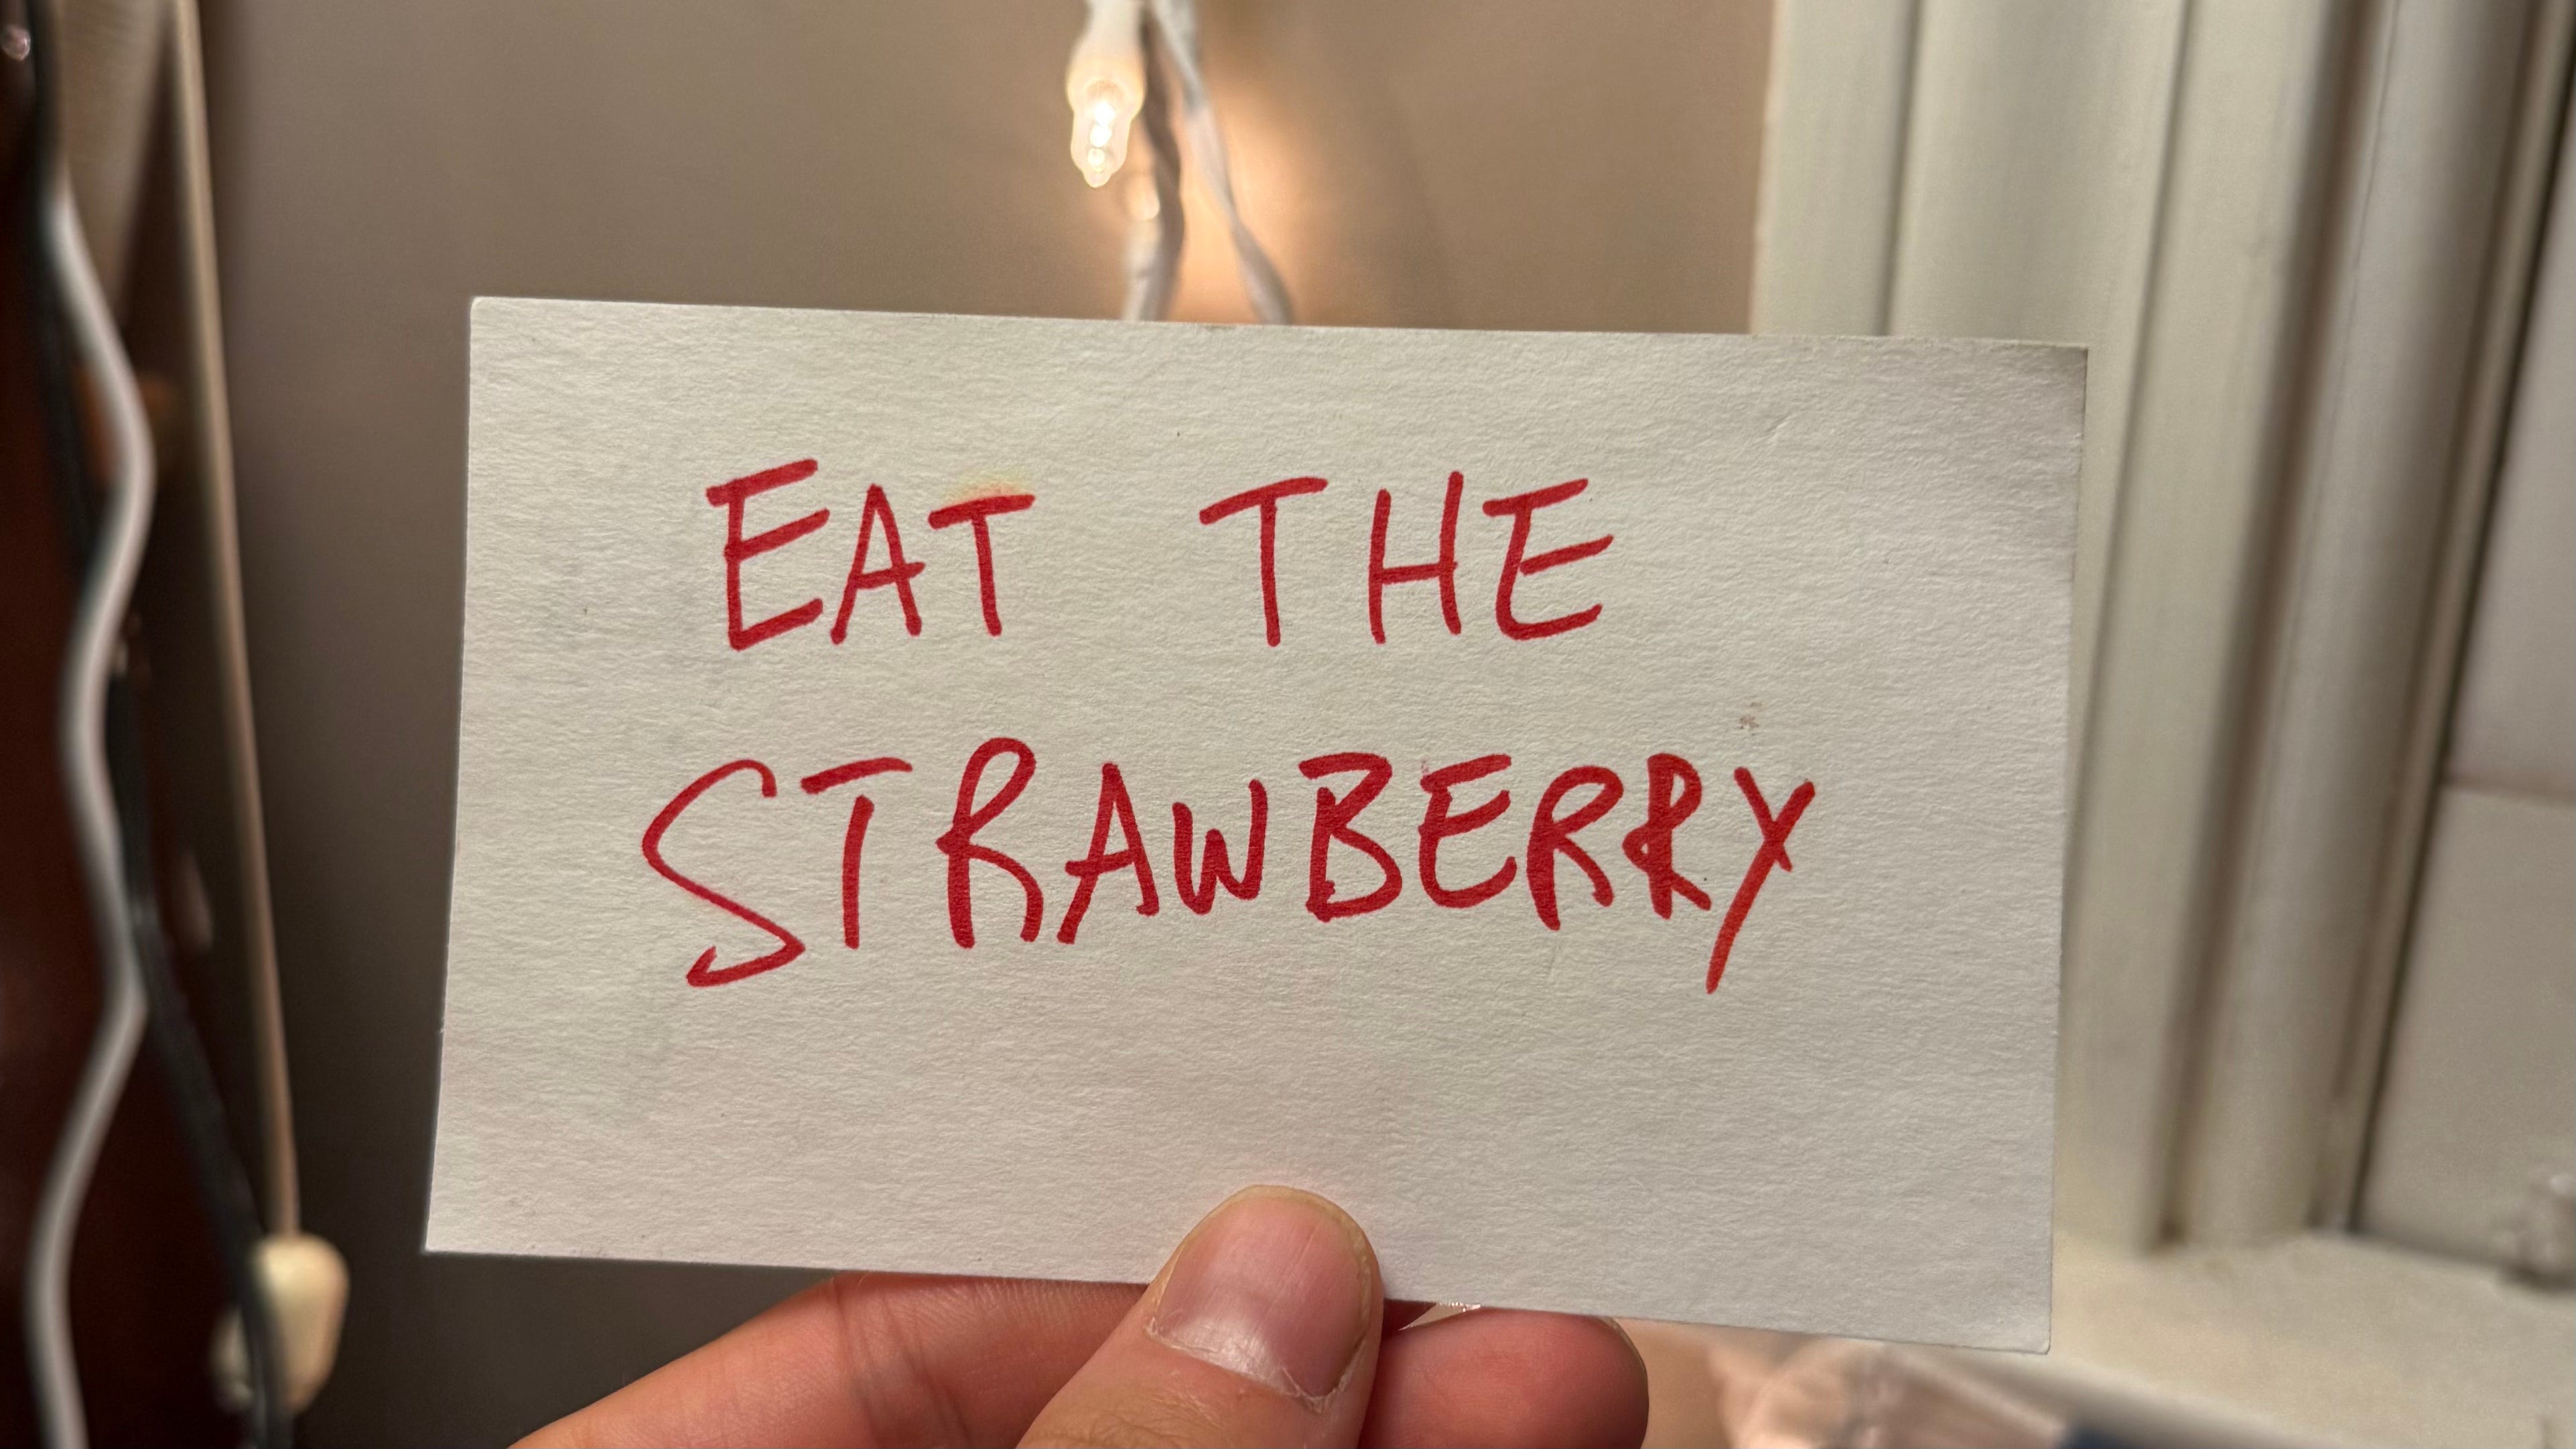 EAT THE
STRAWBERRY